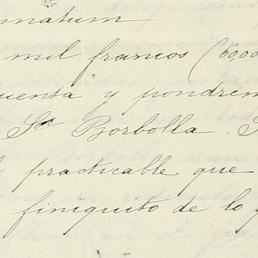 rmatum
mil francos (60,000
uenta y pondrem
Sra Borbolla.
practicable que
finiquito de lo